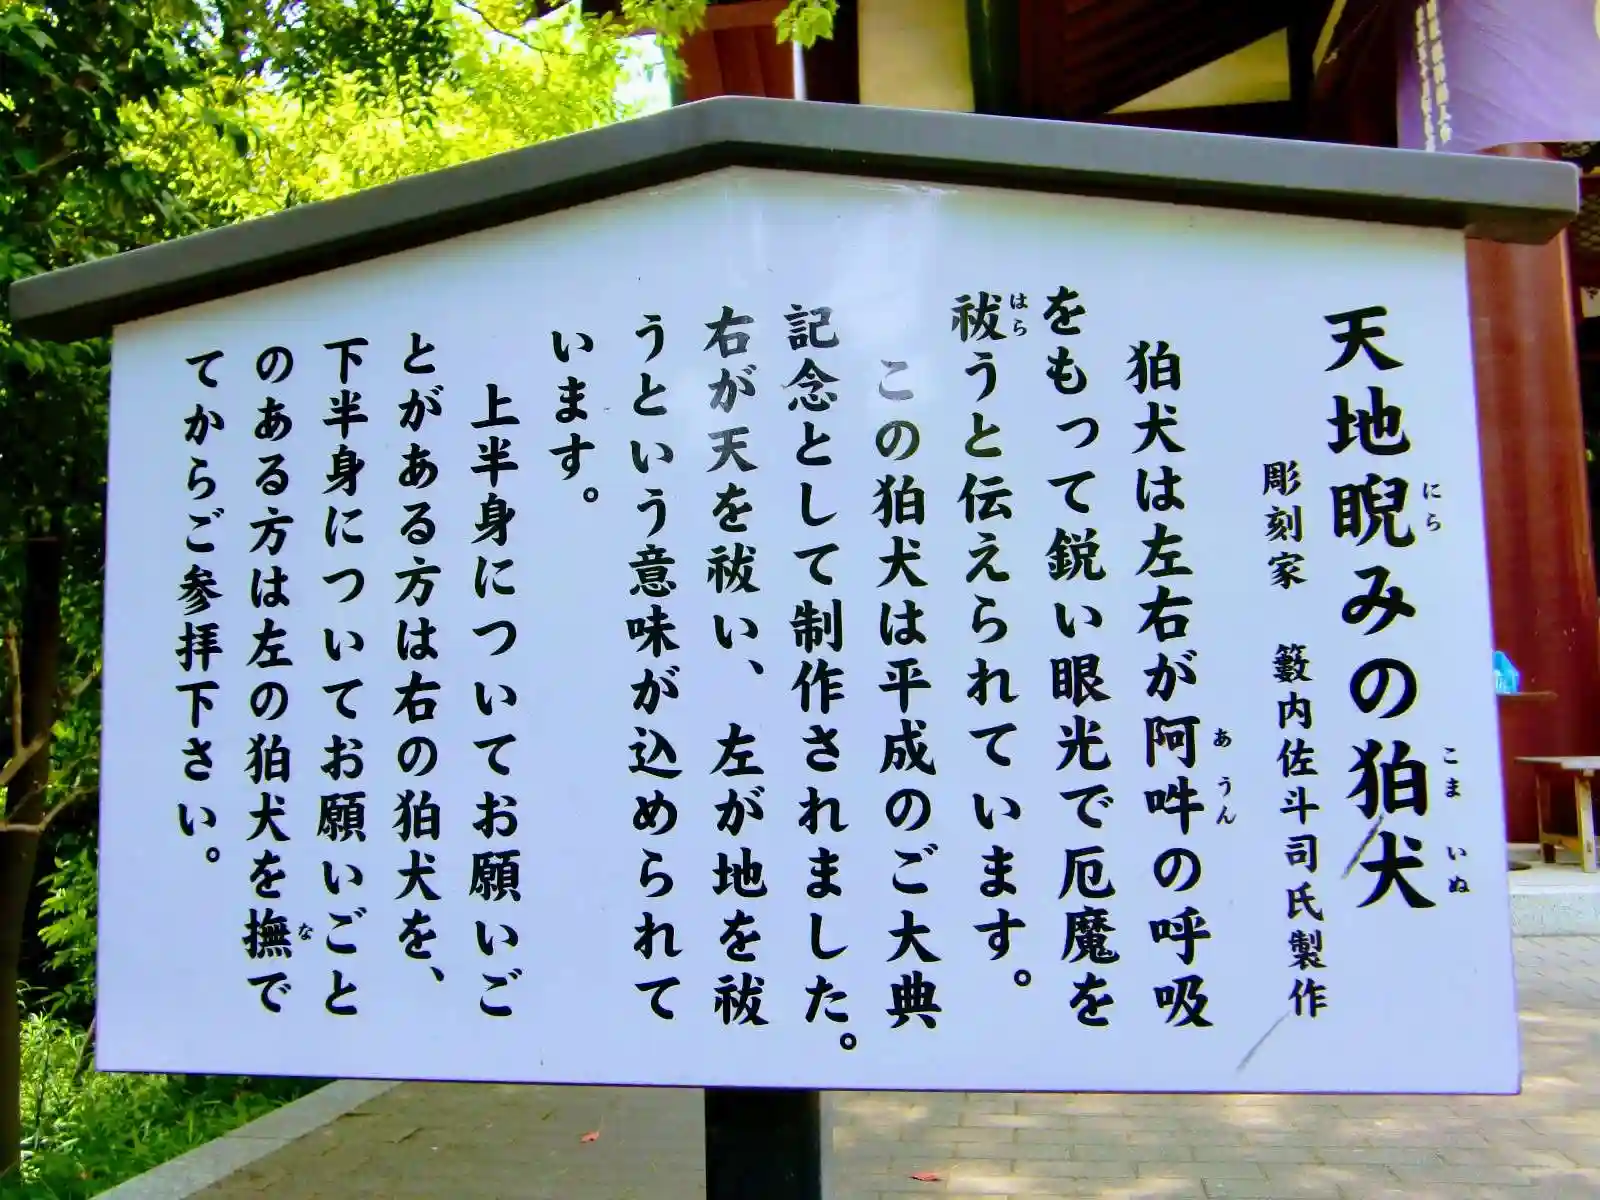 天地睨みの狛犬
にら
こま いぬ
彫刻家 籔内佐斗司氏製作
狛犬は左右が阿吽の呼吸
あ うん
をもって鋭い眼光で厄魔を
祓うと伝えられています。
はら
この狛犬は平成のご大典
記念として制作されました。
右が天を祓い、左が地を祓
うという意味が込められて
います。
上半身についてお願いご
とがある方は右の狛犬を、
下半身についてお願いごと
のある方は左の狛犬を撫で
な
てからご参拝下さい。